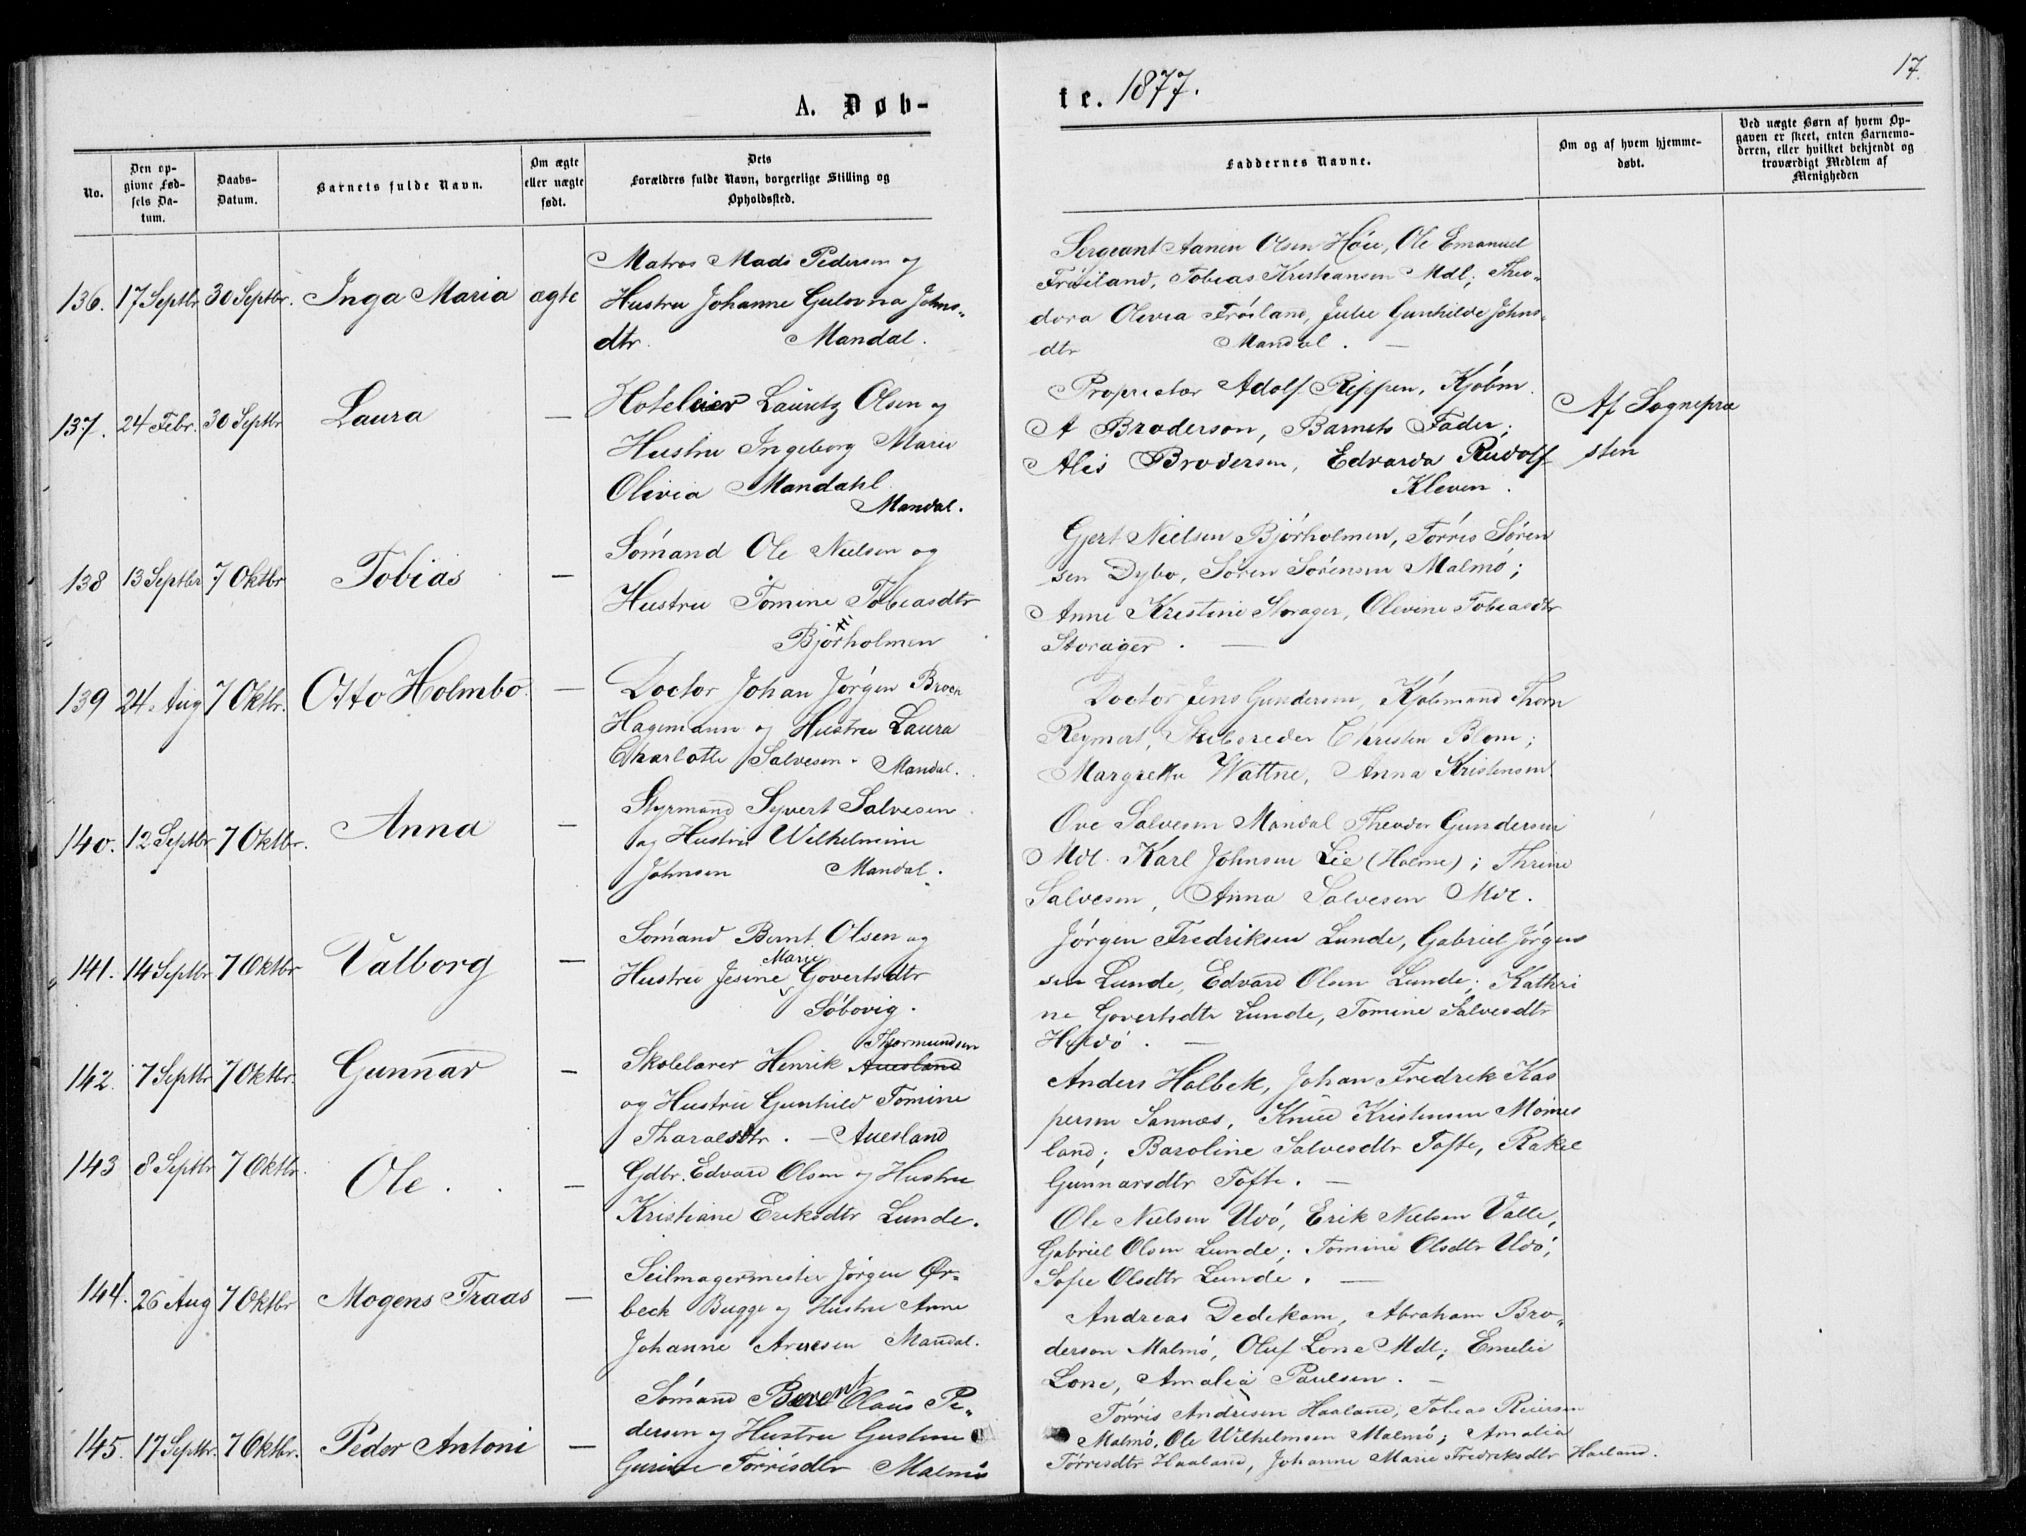 17.
A. Døb-
te. 1877.
No.
Den op-
givne Fød-
sels Da-
tum.
Daabs-
Datum.
Barnets fulde Navn.
Om ægte
eller uægte
født.
Dets
Forældres fulde Navn, borgerlige Stilling og
Opholdssted.
Faddernes Navne.
Om og af hvem hjemme-
døbt.
Ved uægte Børn af hvem Op-
gaven er skeet, enten Barnemo-
deren, eller hvilket bekjendt og
troværdigt Medlem af
Menigheden
136. 17 Septbr 30 Septbr. Inga Maria ægte
Matros Mads Pedersen og
Hustru Johanne Gulovna Johns-
dtr. Mandal.
Sergeant Aanen Olsen Høie, Ole Emanuel
Frøiland, Tobias Kristiansen Mdl; Theo-
dora Olivia Frøiland, Julie Gunhilde Johns-
dtr Mandal. —
137. 24 Febr. 30 Septbr Laura —
Hoteleier Lauritz Olsen og
Hustru Ingeborg Marie
Olivia Mandahl
Mandal.
Proprietær Adolf Rippen, Kjøbm.
A Broderson, Barnets Fader;
Alis Brodersen, Edvarda Rudolf
Kleven.
Af Sognepræ
sten
138 13 Septbr 7 Oktbr Tobias —
Sømand Ole Nielsen og
Hustru Tomine Tobiasdtr
Bjørholmen
Gjert Nielsen Bjørholmen, Tørris Søren
sen Dybo, Søren Sørensen Malmø;
Anne Kristine Storager, Olevine Tobiasdtr
Storager. —
139 24. Aug 7 Oktbr. Otto Holmbo. —
Doctor Johan Jørgen Broch
Hagemann og Hustru Laura
Charlotte Salvesen. Mandal.
Doctor Jens Gundersen, Kjøbmand Thom
Reymert, Skibsreder Christen Blom;
Margrethe Wattne, Anna Kristensen
140. 12 Septbr 7 Oktbr. Anna —
Styrmand Syvert Salvesen
og Hustru Wilhelmine
Johnsen Mandal.
Ove Salvesen Mandal Theodor Gundersen
Mdl. Karl Johnsen Lie (Holme); Thrine
Salvesen, Anna Salvesen Mdl.
141. 14 Septbr 7 Oktbr Valborg —
Sømand Bernt Olsen og
Marie
Hustru Jesine Govertsdtr
Søbovig.
Jørgen Fredriksen Lunde, Gabriel Jørgen
sen Lunde, Edvard Olsen Lunde; Kathri
ne Govertsdtr Lunde, Tomine Salvesdtr
142. 7 Septbr 7 Oktbr. Gunnar —
Thormundsen
Skolelærer Henrik Auesland
og Hustru Gunhild Tomine
Tharaldsdtr. — Auesland
Anders Holbek, Johan Fredrik Kas
persen Sannæs, Knud Kristensen Møines
land; Baroline Salvesdtr Tofte, Rakel
Gunnarsdtr Tofte. —
143 8 Septbr 7 Oktbr. Ole. —
Gdbr. Edvard Olsen og Hustru
Kristiane Eriksdtr Lunde.
Ole Nielsen Udø, Erik Nielsen Valle,
Gabriel Olsen Lunde; Tomine Olsdtr Udø,
Sofie Olsdtr Lunde. —
144. 26 Aug 7 Oktbr Mogens Traas —
Seilmagermester Jørgen Ør-
beck Bugge og Hustru Anne
Johanne Arnesen Mandal.
Andreas Dedekam, Abraham Bro-
derson Malmø, Oluf Lone Mdl; Emelie
Lone, Amalia Paulsen. —
145. 17 Septbr. 7 Oktbr. Peder Antoni —
Sømand Berent Olaus Pe-
dersen og Hustru Gustine
Gurine Tørrisdtr Malmø
Tørris Andresen Haaland, Tobias Reiersen
Malmø, Ole Wilhelmsen Malmø; Amalia
Tørresdtr Haaland, Johanne Marie Fredriksdtr Haaland.